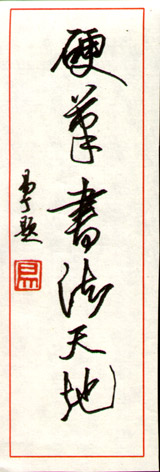 硬筆書法天地
题